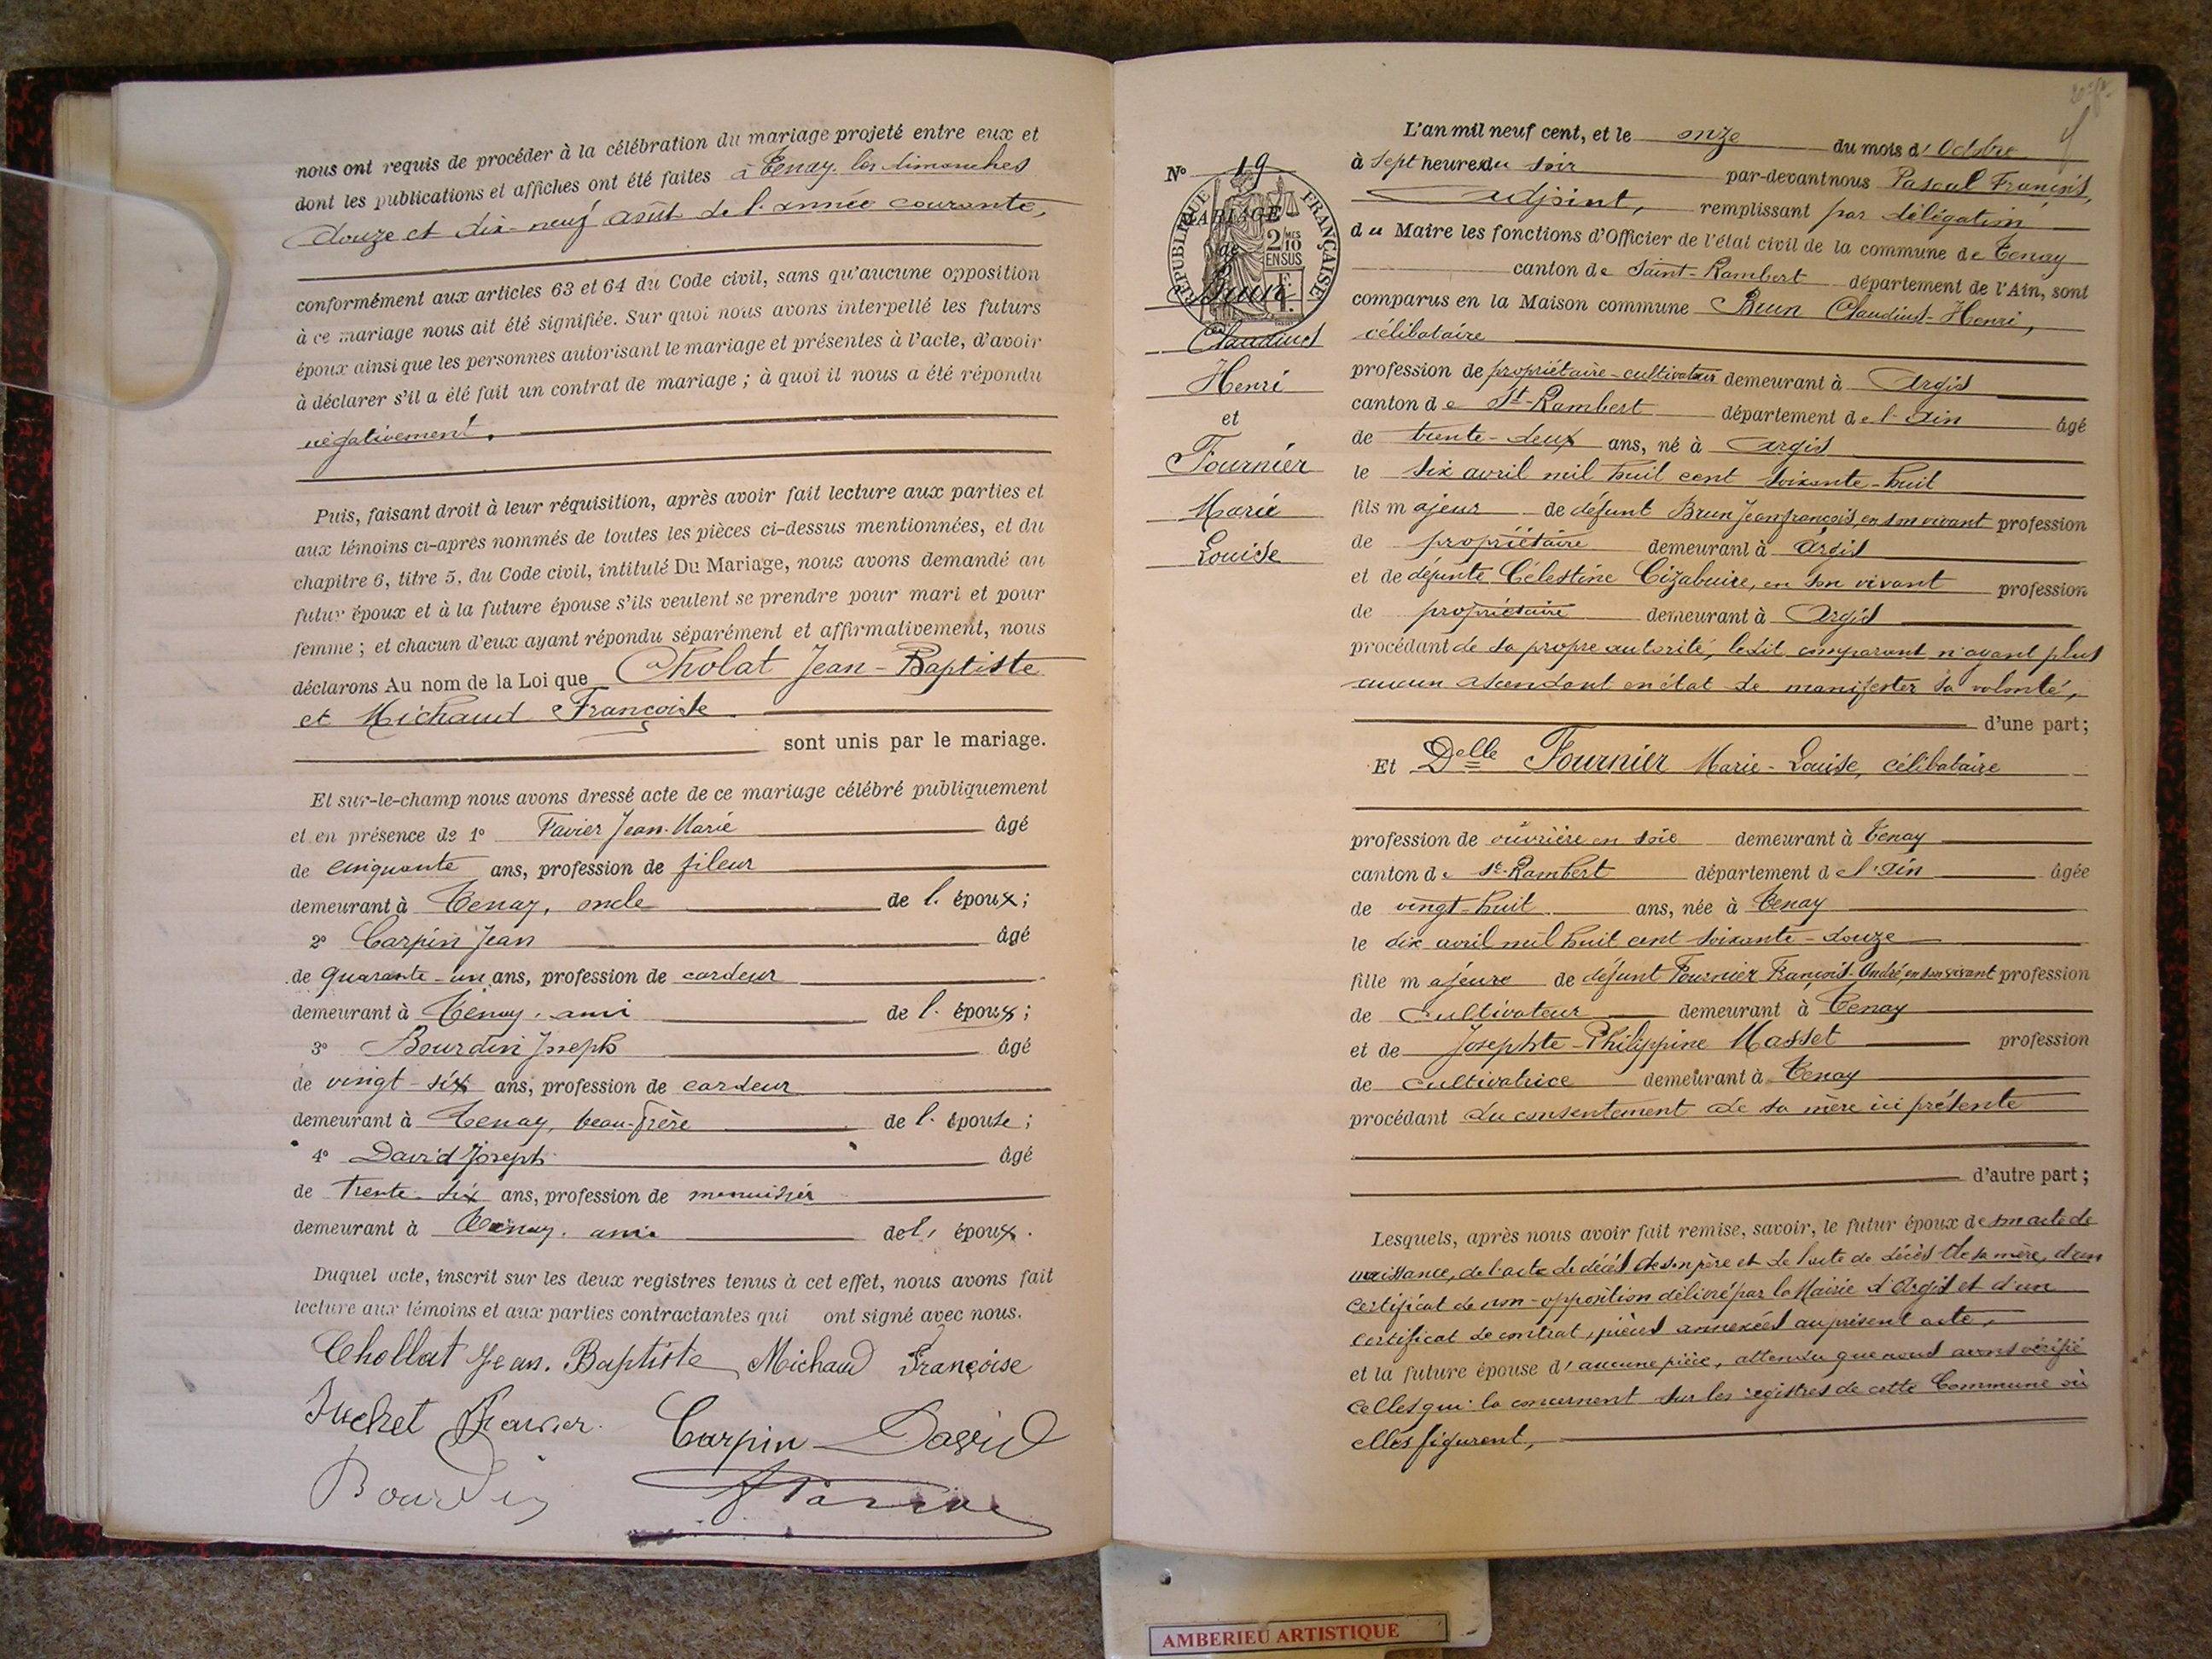 nous ont requis de procéder à la célébration du mariage projeté entre eux et
dont les publications et affiches ont été faites à Tenay les dimanches
douze et dix-neuf août de l'année courante,
conformément aux articles 63 et 64 du Code civil, sans qu'aucune opposition
à ce mariage nous ait été signifiée. Sur quoi nous avons interpellé les futurs
époux ainsi que les personnes autorisant le mariage et présentes à l'acte, d'avoir
à déclarer s'il a été fait un contrat de mariage ; à quoi il nous a été répondu
négativement.
Puis, faisant droit à leur réquisition, après avoir fait lecture aux parties et
aux témoins ci-après nommés de toutes les pièces ci-dessus mentionnées, et du
chapitre 6, titre 5, du Code civil, intitulé Du Mariage, nous avons demandé au
futur époux et à la future épouse s'ils veulent se prendre pour mari et pour
femme ; et chacun d'eux ayant répondu séparément et affirmativement, nous
déclarons Au nom de la Loi que Cholat Jean-Baptiste
et Michaud Françoise
sont unis par le mariage.
Et sur-le-champ nous avons dressé acte de ce mariage célébré publiquement
et en présence de 1° Favier Jean-Marie âgé
de cinquante ans, profession de fileur
demeurant à Tenay, oncle de l. époux ;
2° Carpin Jean âgé
de quarante-un ans, profession de cardeur
demeurant à Tenay, ami de l. époux ;
3° Bourdin Joseph âgé
de vingt-six ans, profession de cardeur
demeurant à Tenay, beau-frère de l. épouse ;
4° David Joseph âgé
de trente-six ans, profession de menuisier
demeurant à Tenay. ami de l, époux.
Duquel acte, inscrit sur les deux registres tenus à cet effet, nous avons fait
lecture aux témoins et aux parties contractantes qui ont signé avec nous.
Chollat Jean. Baptiste Michaud Françoise
Carpin David
Bourdin
N° 19
RÉPUBLIQUE FRANÇAISE
2/10 MES
EN SUS
MARIAGE
de
Brun
Claudius
Henri
et
Fournier
Marie
Louise
L'an mil neuf cent, et le onze du mois d' Octobre
à sept heures du soir par-devant nous Pascal François,
adjoint, remplissant par délégation
du Maire les fonctions d'Officier de l'état civil de la commune de Tenay
canton de Saint-Rambert département de l'Ain, sont
comparus en la Maison commune Brun Claudius-Henri,
célibataire
profession de propriétaire-cultivateur demeurant à Argis
canton de St-Rambert département de l'Ain âgé
de trente-deux ans, né à Argis
le six avril mil huit cent soixante-huit
fils majeur de défunt Brun Jean françois, en son vivant profession
de propriétaire demeurant à Argis
et de défunte Célestine Cizabuire, en son vivant profession
de propriétaire demeurant à Argis
procédant de sa propre autorité, ledit comparant n'ayant plus
aucun ascendant en état de manifester sa volonté,
d'une part ;
Et Delle Fournier Marie-Louise, célibataire
profession de ouvrière en soie demeurant à Tenay
canton de St-Rambert département de l'Ain âgée
de vingt-huit ans, née à Tenay
le dix avril mil huit cent soixante-douze
fille majeure de défunt Fournier François-André, en son vivant profession
de cultivateur demeurant à Tenay
et de Josephte-Philippine Masset profession
de cultivatrice demeurant à Tenay
procédant du consentement de sa mère ici présente
d'autre part ;
Lesquels, après nous avoir fait remise, savoir, le futur époux de son acte de
naissance, de l'acte de décès de son père et de l'acte de décès de sa mère, d'un
certificat de non-opposition délivré par la Mairie d'Argis et d'un
certificat de contrat, pièces annexées au présent acte,
et la future épouse d'aucune pièce, attendu que nous avons vérifié
celles qui la concernent sur les registres de cette Commune où
elles figurent,
AMBERIEU ARTISTIQUE